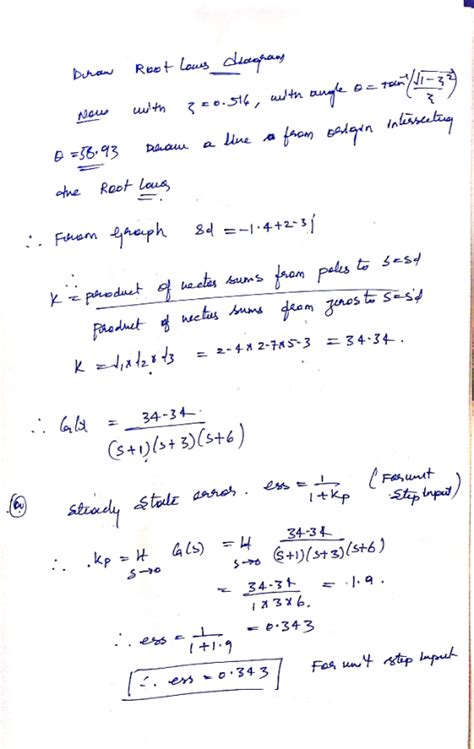 Draw Root Locus diagram
Now with ζ = 0.516, with angle θ = tan⁻¹(√1-ζ²/ζ)
θ = 58.93 Draw a line from origin intersecting
the Root Locus
∴ From Graph Sd = -1.4+2.3j
K = product of vector sums from poles to S=Sd
Product of vector sums from zeros to S=Sd
K = l1 x l2 x l3 = 2.4 x 2.7 x 5.3 = 34.34.
∴ G(s) = 34.34 / (S+1)(S+3)(S+6)
Steady State error. ess = 1/1+Kp (For unit Step Input)
∴ Kp = lt S→0 G(s) = lt S→0 34.34 / (S+1)(S+3)(S+6)
= 34.34 / 1x3x6. = 1.9.
∴ ess = 1/1+1.9 = 0.343
∴ ess = 0.343 For unit step Input